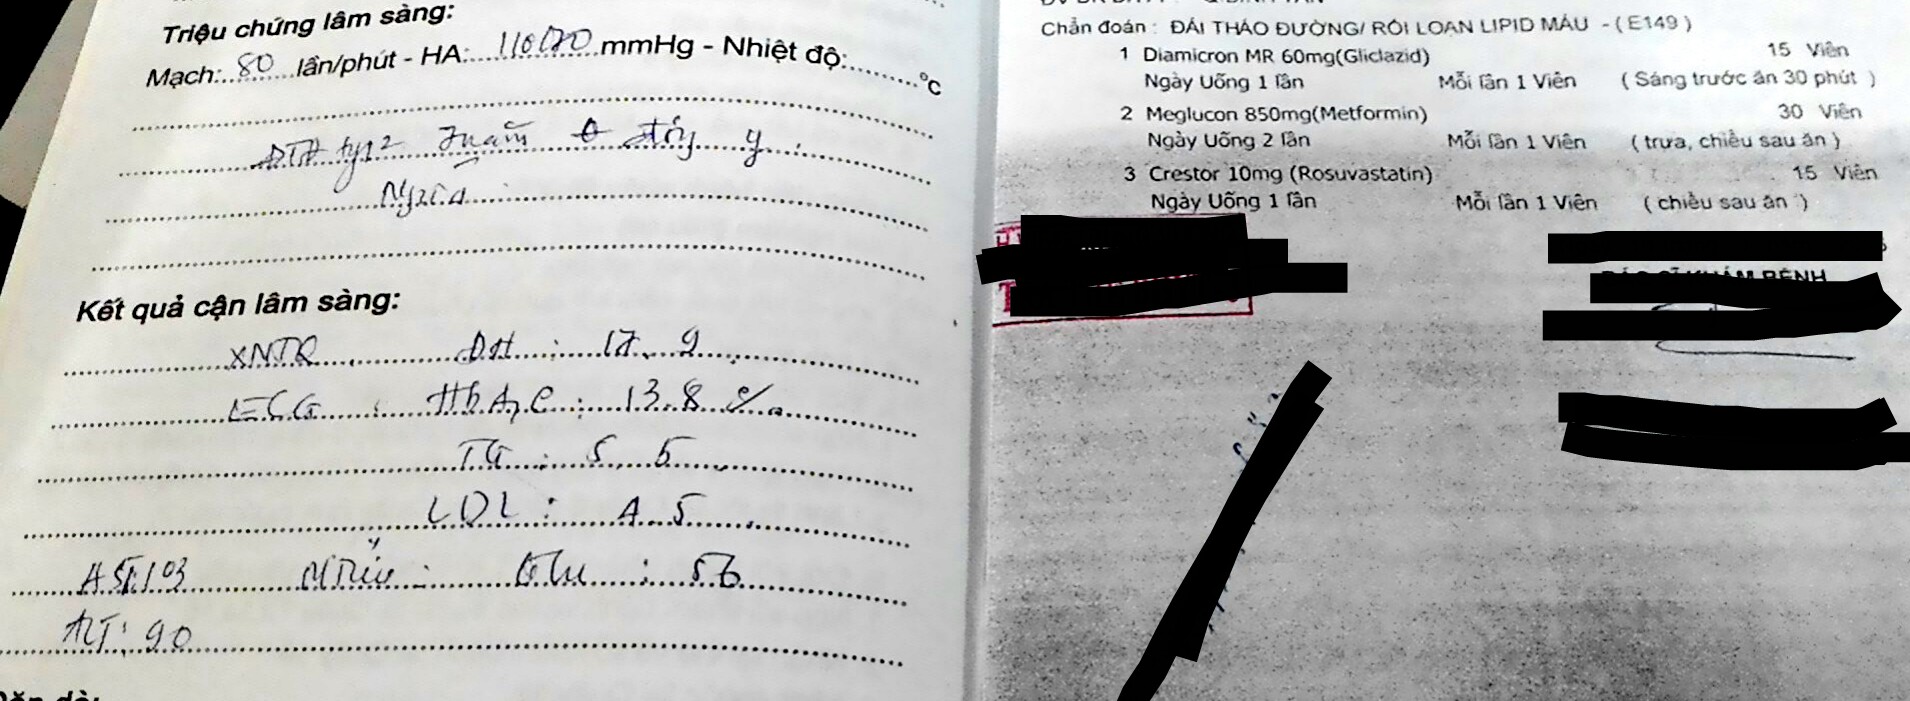 Triệu chứng lâm sàng:
Mạch: 80 lần/phút - HA: 110/70 mmHg - Nhiệt độ: °C
ĐTĐ typ2 7 năm θ đtrị
Ngưa
Kết quả cận lâm sàng:
XNTQ ĐH : 17.9
ECG HbA1C : 13.8 %
TG : 5.5
LDL : 4.5
AST: 103 NTiểu : Glu : 56
ALT: 90
Chẩn đoán : ĐÁI THÁO ĐƯỜNG/ RỐI LOẠN LIPID MÁU - ( E149 )
1 Diamicron MR 60mg(Gliclazid) 15 Viên
Ngày Uống 1 lần Mỗi lần 1 Viên ( Sáng trước ăn 30 phút )
2 Meglucon 850mg(Metformin) 30 Viên
Ngày Uống 2 lần Mỗi lần 1 Viên ( trưa, chiều sau ăn )
3 Crestor 10mg (Rosuvastatin) 15 Viên
Ngày Uống 1 lần Mỗi lần 1 Viên ( chiều sau ăn )